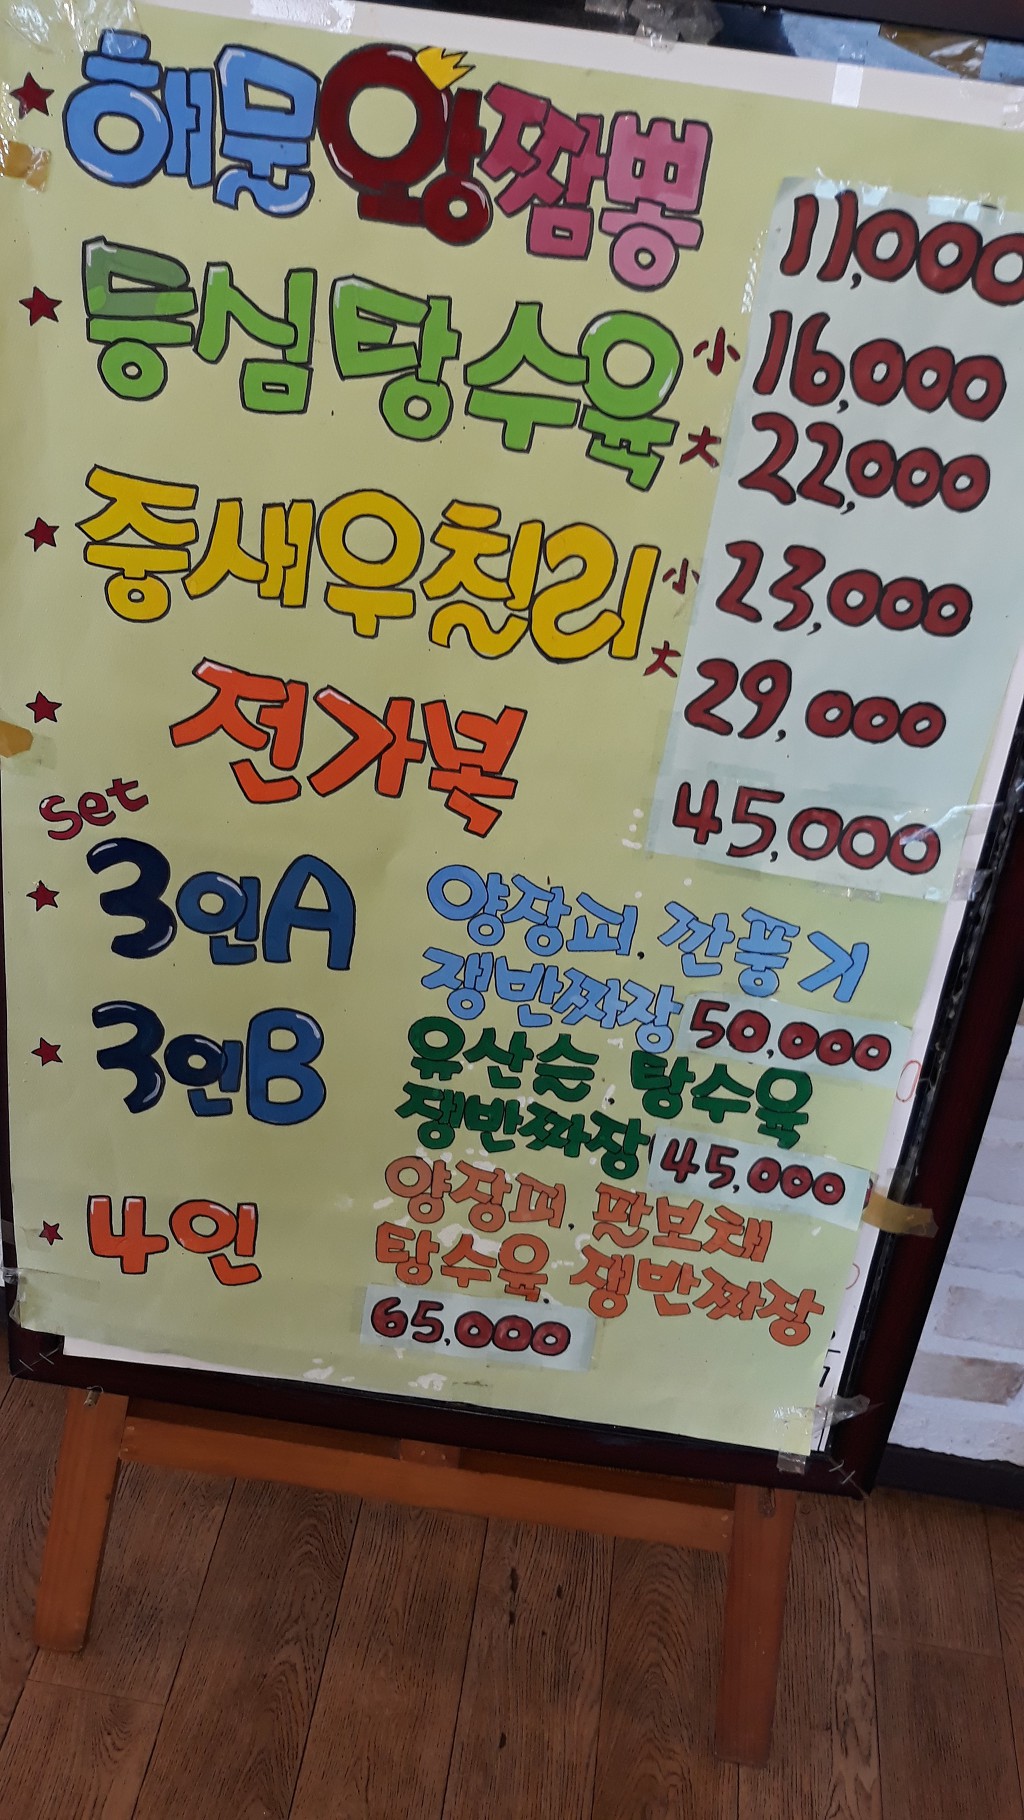 해물왕짬뽕 11,000
등심탕수육 小 16,000
大 22,000
중새우칠리 小 23,000
大 29,000
전가복 45,000
Set
3인A 양장피, 깐풍기
쟁반짜장 50,000
3인B 유산슬, 탕수육
쟁반짜장 45,000
4인 양장피, 팔보채
탕수육, 쟁반짜장
65,000